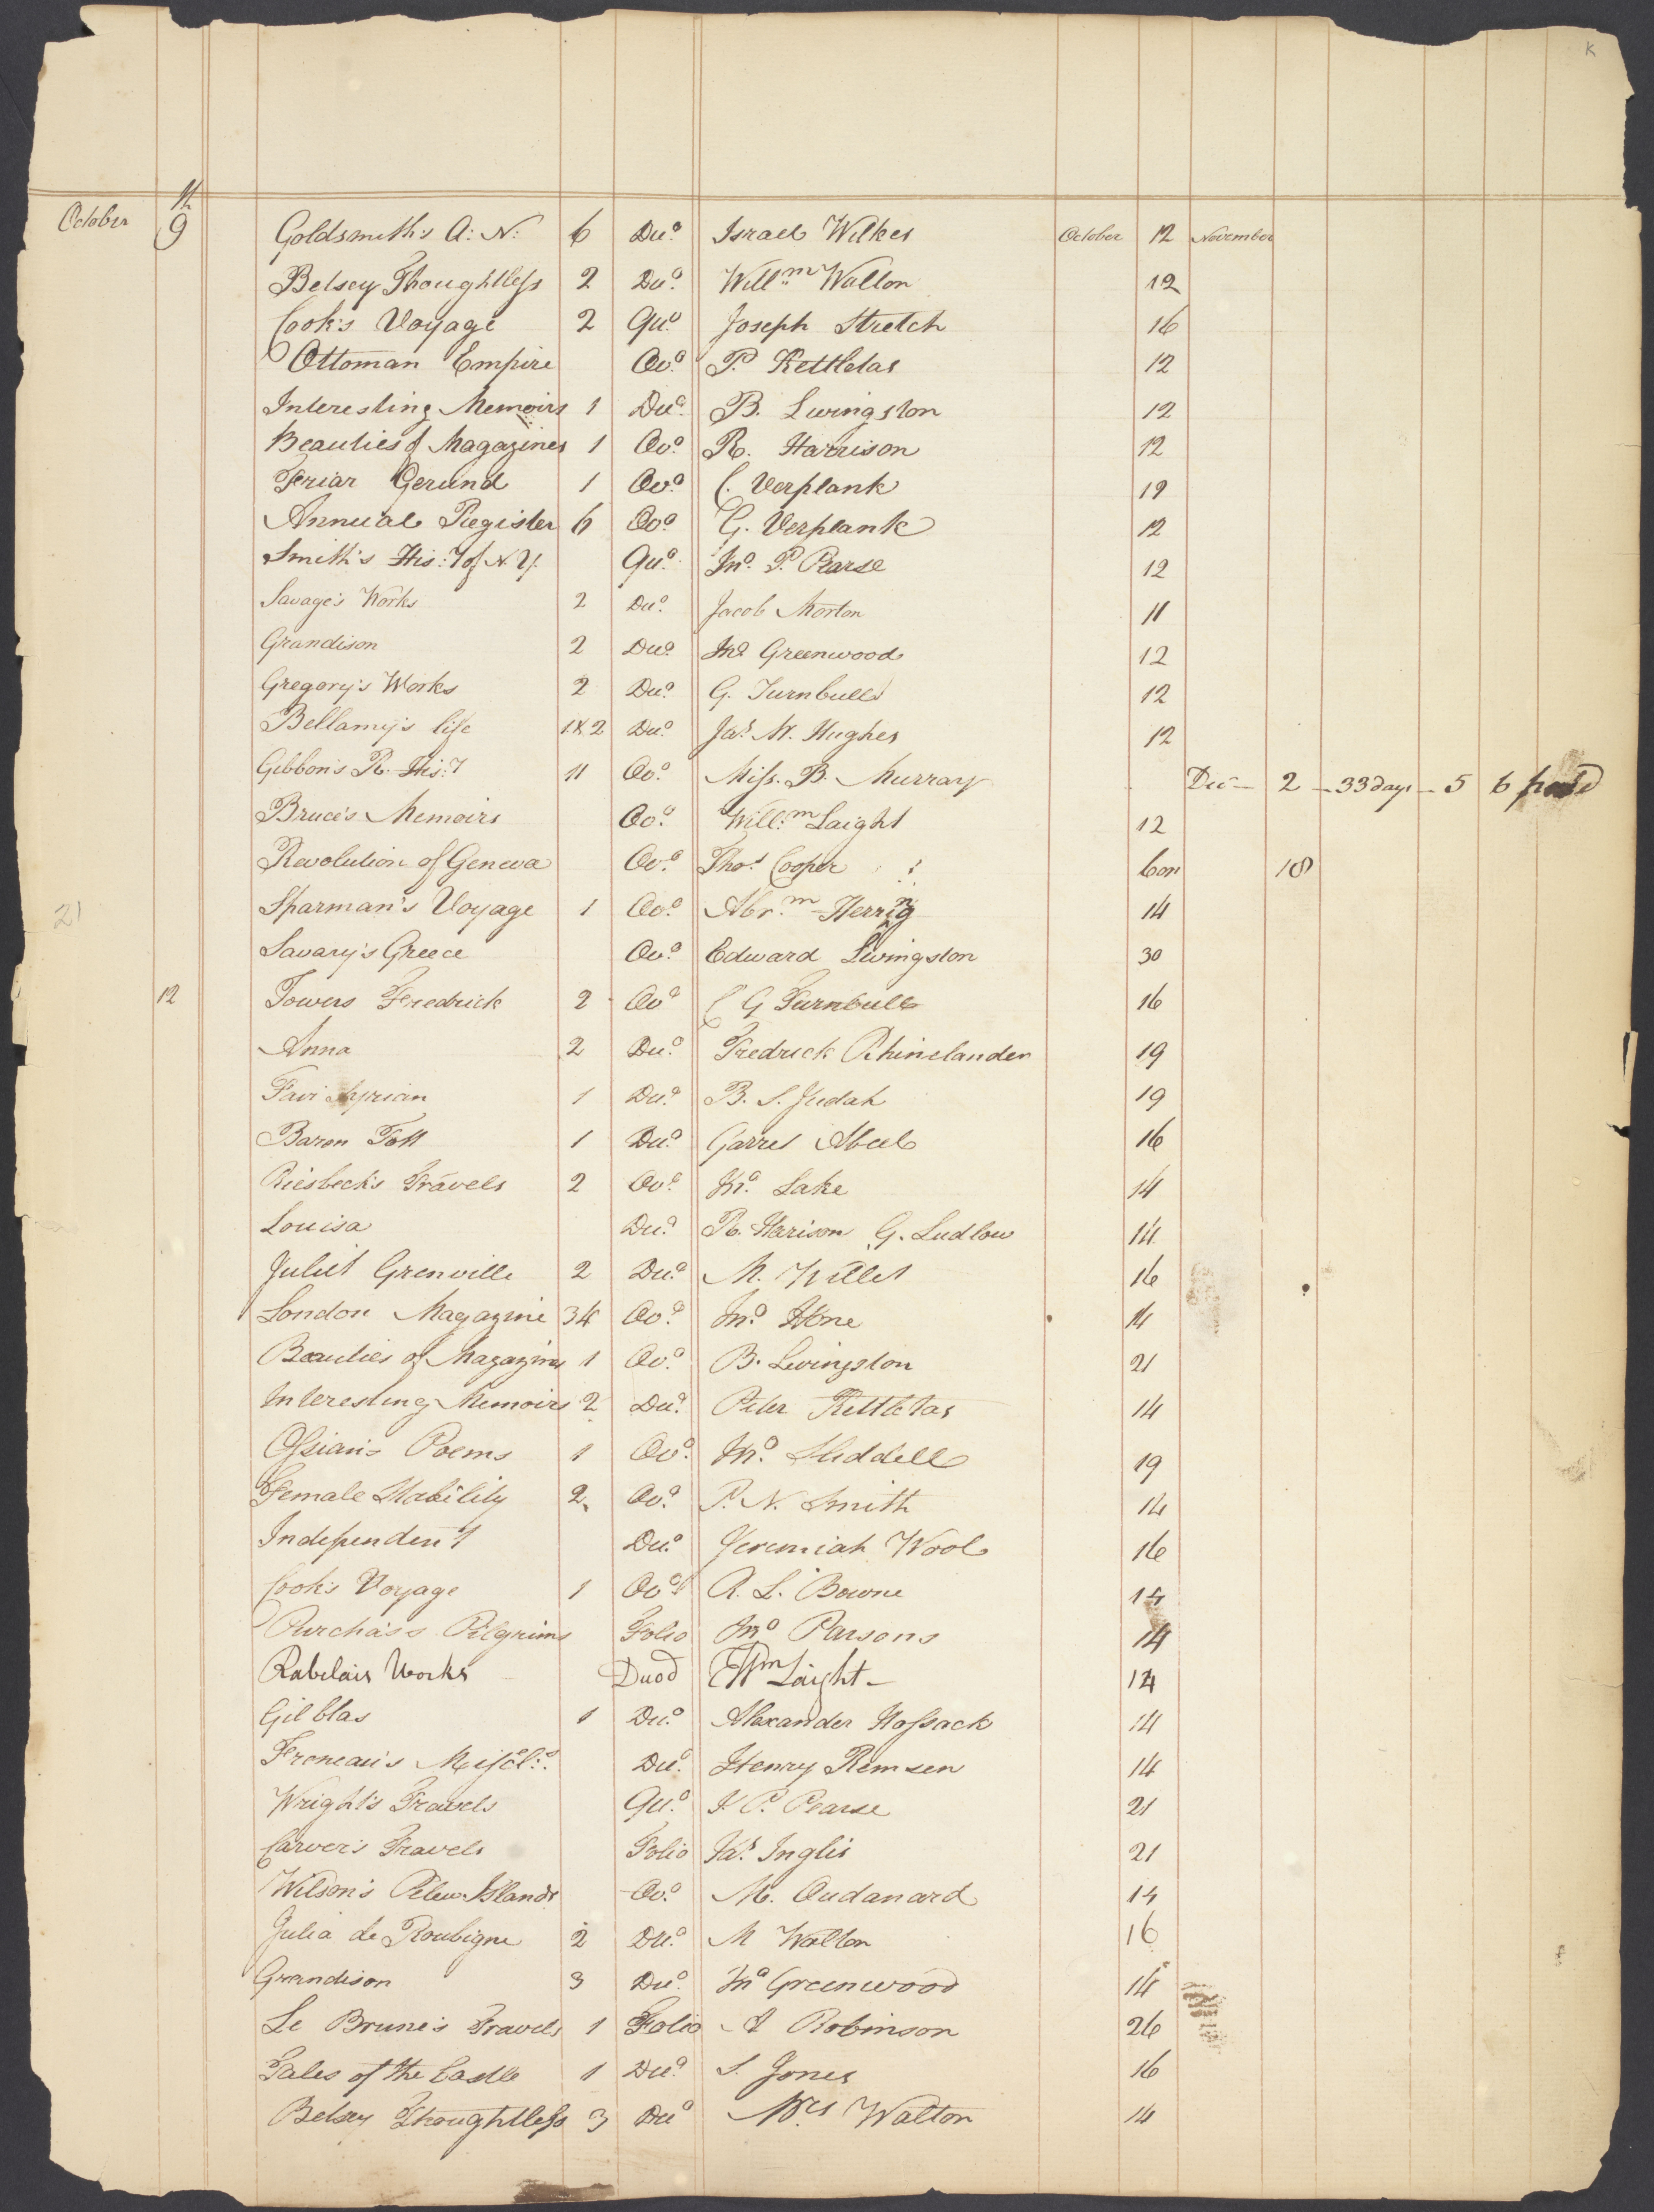 K
th
October 9 Goldsmith's A: N: 6 Duo. Israel Wilkes October 12 November
Betsey Thoughtless 2 Duo. Willm. Walton 12
Cook's Voyage 2 Quo. Joseph Stretch 16
Ottoman Empire Ovo. P. Kettletas 12
Interesting Memoirs 1 Duo. B. Livingston 12
Beauties of Magazines 1 Ovo. R. Harrison 12
Friar Gerund 1 Ovo. C. Verplank 19
Annual Register 6 Ovo. G. Verplank 12
Smith's His:y of N. Y. Quo. Jno. P. Pearse 12
Savage's Works 2 Duo. Jacob Morton 11
Grandison 2 Duo. Jno. Greenwood 12
Gregory's Works 2 Duo. G. Turnbull 12
Bellamy's life 1 & 2 Duo. Jas. M. Hughes 12
Gibbon's R. His:y 11 Ovo. Miss. B. Murray Dec - 2 - 33 days - 5 6 paid
Bruce's Memoirs Ovo. Will:m Laight 12
Revolution of Geneva Ovo. Thos. Cooper Con 18
21 Sparman's Voyage 1 Ovo. Abr.m Herring 14
Savary's Greece Ovo. Edward Livingston 30
12 Towers Fredrick 2 Ovo C G Turnbull 16
Anna 2 Duo. Fredrick Rhinelander 19
Fair Syrian 1 Duo. B. S. Judah 19
Baron Tott 1 Duo. Garret Abeel 16
Riesbeck's Travels 2 Ovo. Jno. Lake 14
Louisa Duo. R. Harison G. Ludlow 14
Juliet Grenville 2 Duo. M. Willet 16
London Magazine 34 Ovo. Jno. Hone 14
Beauties of Magazines 1 Ovo. B. Livingston 21
Interesting Memoirs 2 Duo. Peter Kettletas 14
Ossian's Poems 1 Ovo. Jno. Sliddell 19
Female Stability 2 Ovo. P. N. Smith 14
Independent Duo. Jeremiah Wool 16
Cook's Voyage 1 Ovo. R. L. Bowne 14
Purchass Pilgrims Folio Jno Parsons 14
Rabelais Works Duod Wm Laight - 14
Gil blas 1 Duo. Alexander Hossack 14
Freneau's Miscl:s Duo. Henry Remsen 14
Wright's Travels Quo. J. P. Pearse 21
Carver's Travels Folio Jas. Inglis 21
Wilson's Pelew Islands Ovo. M. Oudanard 14
Julia de Roubigne 2 Duo. M Walton 16
Grandison 3 Duo. Jno Greenwood 14
Le Brune's Travels 1 Folio A Robinson 26
Tales of the Castle 1 Duo. S. Jones 16
Betsey Thoughtless 3 Duo Mrs Walton 14